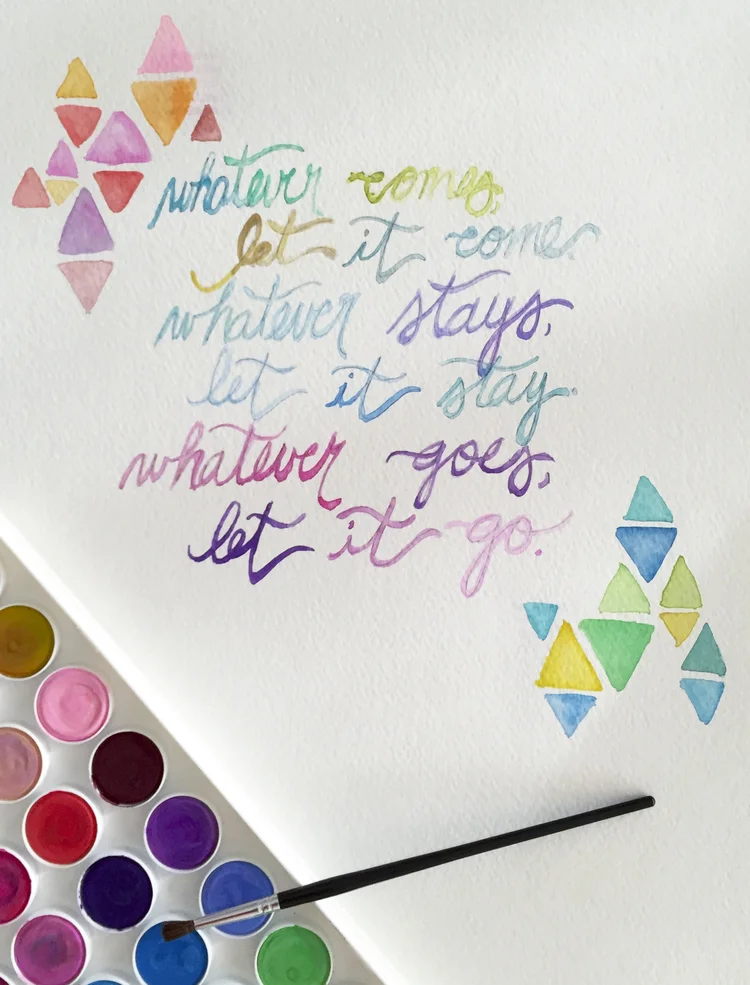 whatever comes,
let it come.
whatever stays,
let it stay.
whatever goes,
let it go.